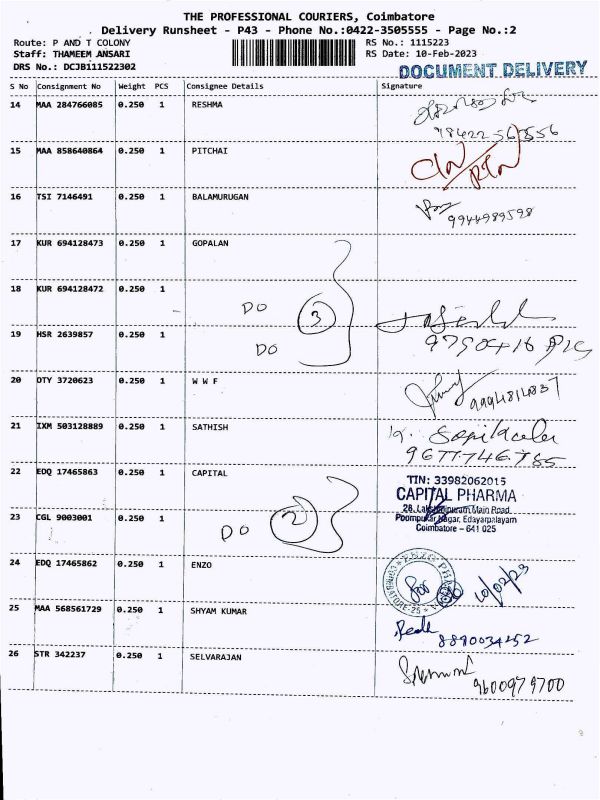 THE PROFESSIONAL COURIERS, Coimbatore
Delivery Runsheet - P43 - Phone No.:0422-3505555 - Page No.:2
Route: P AND T COLONY RS No.: 1115223
Staff: THAMEEM ANSARI RS Date: 10-Feb-2023
DRS No.: DCJB111522302 DOCUMENT DELIVERY
S No Consignment No Weight PCS Consignee Details Signature
14 MAA 284766085 0.250 1 RESHMA
15 MAA 858640864 0.250 1 PITCHAI
16 TSI 7146491 0.250 1 BALAMURUGAN
9944989598
17 KUR 694128473 0.250 1 GOPALAN
18 KUR 694128472 0.250 1
DO 3
19 HSR 2639857 0.250 1
DO
20 OTY 3720623 0.250 1 W W F
9994814837
21 IXM 503128889 0.250 1 SATHISH
9677746785
22 EDQ 17465863 0.250 1 CAPITAL
TIN: 33982062015
CAPITAL PHARMA
Main Road
Nagar, Edayarpalayam
Coimbatore - 641 025
23 CGL 9003001 0.250 1
DO 2
24 EDQ 17465862 0.250 1 ENZO
10/02/23
25 MAA 568561729 0.250 1 SHYAM KUMAR
8890034252
26 STR 342237 0.250 1 SELVARAJAN
9600979700